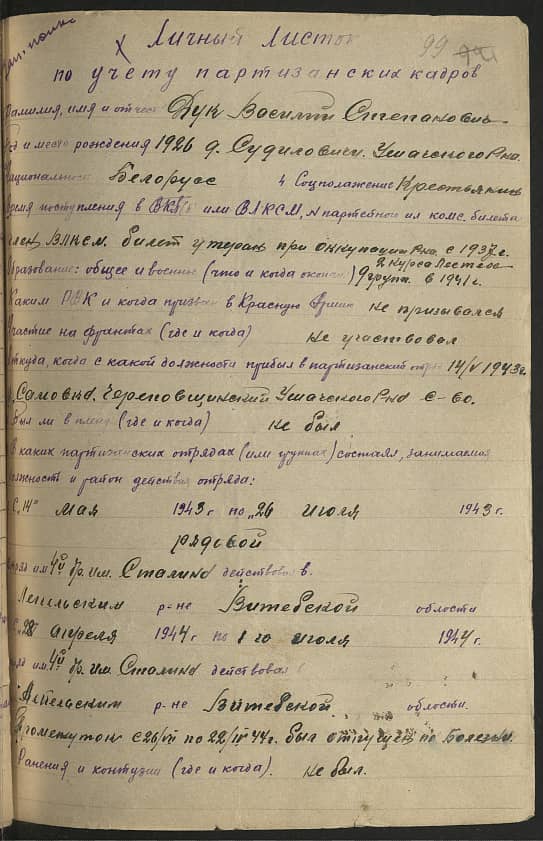 Личный Листок 99
по учету партизанских кадров
Фамилия, имя и отчест Дук Василий Степанович
Год и место рождения 1926 д. Судиловичи Ушачского Р-на
Национальност Белорусс 4 Соцположение Крестьянин
Время поступления в ВКП/б или ВЛКСМ, N партетной ил комс. билета
член ВЛКСМ. билет утерян при оккупации Р-на с 1937 г.
Образование: общее и военное (что и когда окончил) 9 групп. в 1941 г.
2 курса
Каким РВК и когда призван в Красную Армию не призывался
Участие на франтах (где и когда) не участвовал
Откуда, когда с какой должности прибыл в партизанский отряд 14/V 1943 г.
Ушачского Р-на
Был ли в плену (где и когда) не был
В каких партизанских отрядах (или группах) состоял, занимаемая
должность и район действия отряда:
С "14" Мая 1943 г по "26 Июля 1943 г.
рядовой
отряд им 4й бр. им. Сталина действовал в.
Лепельским р-не Витебской области
С 28 апреля 1944 г по 1 го июля 1944 г.
отряд им 4й бр. им. Сталина действовал
Лепельским р-не Витебской области.
Промежуток с 26/VII по 22/IV 44 г. был отпущен по Болезни.
Ранения и контузии (где и когда). не был.